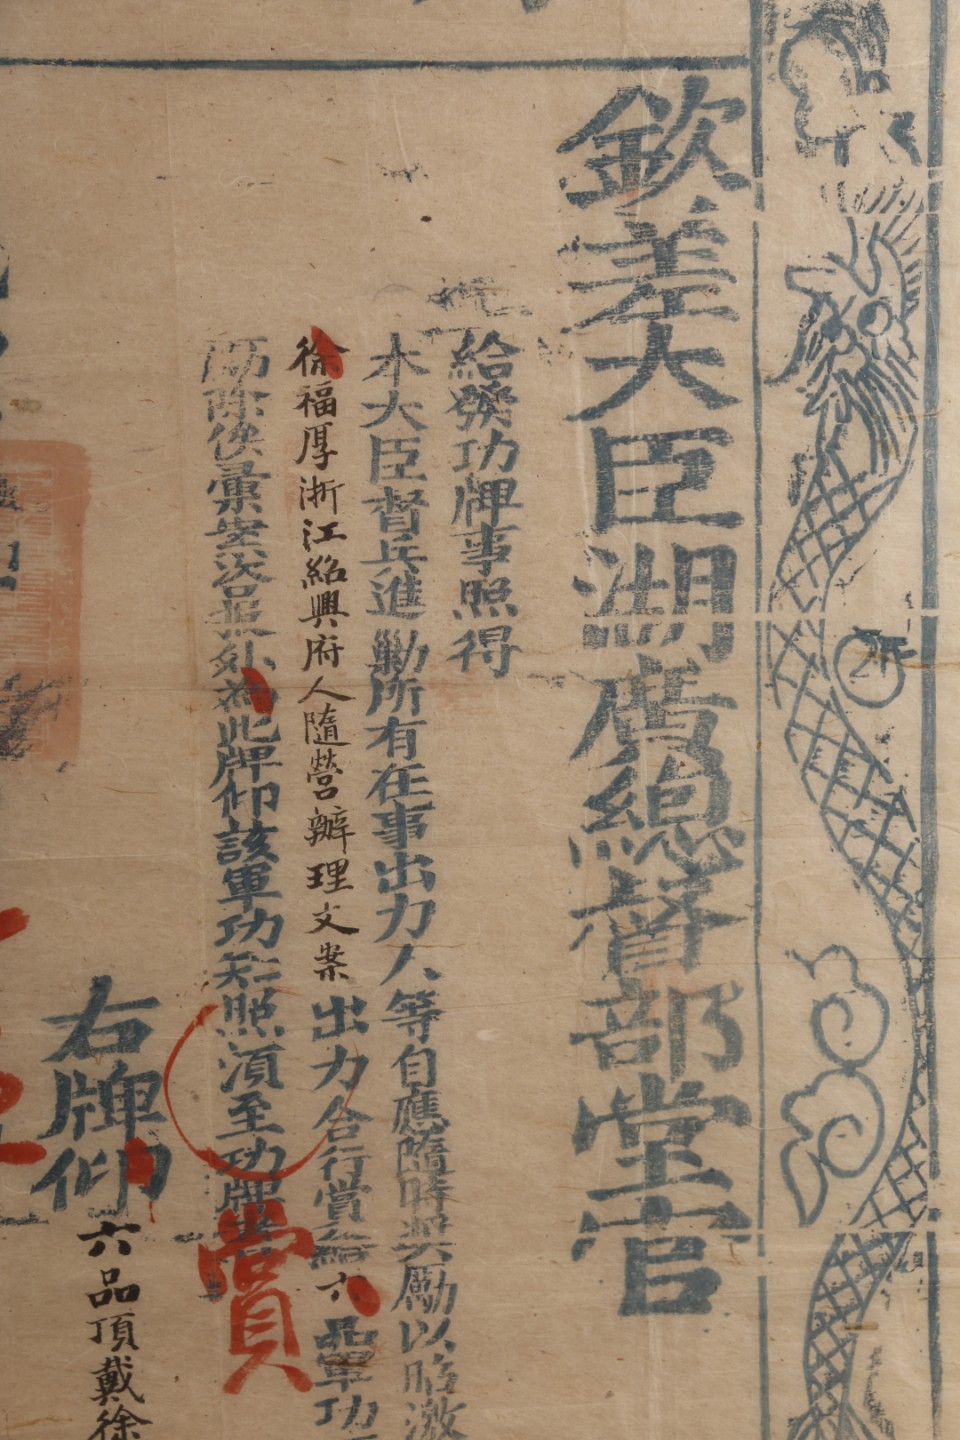 欽差大臣湖廣總督部堂官
給發功牌事照得
本大臣督兵進勦所有在事出力人等自應隨時獎勵以昭激
徐福厚浙江紹興府人隨營辦理文案出力合行賞給六品軍功
勵除俟彙案咨報外為此牌仰該軍功知照須至功牌者
賞
右牌仰六品頂戴徐